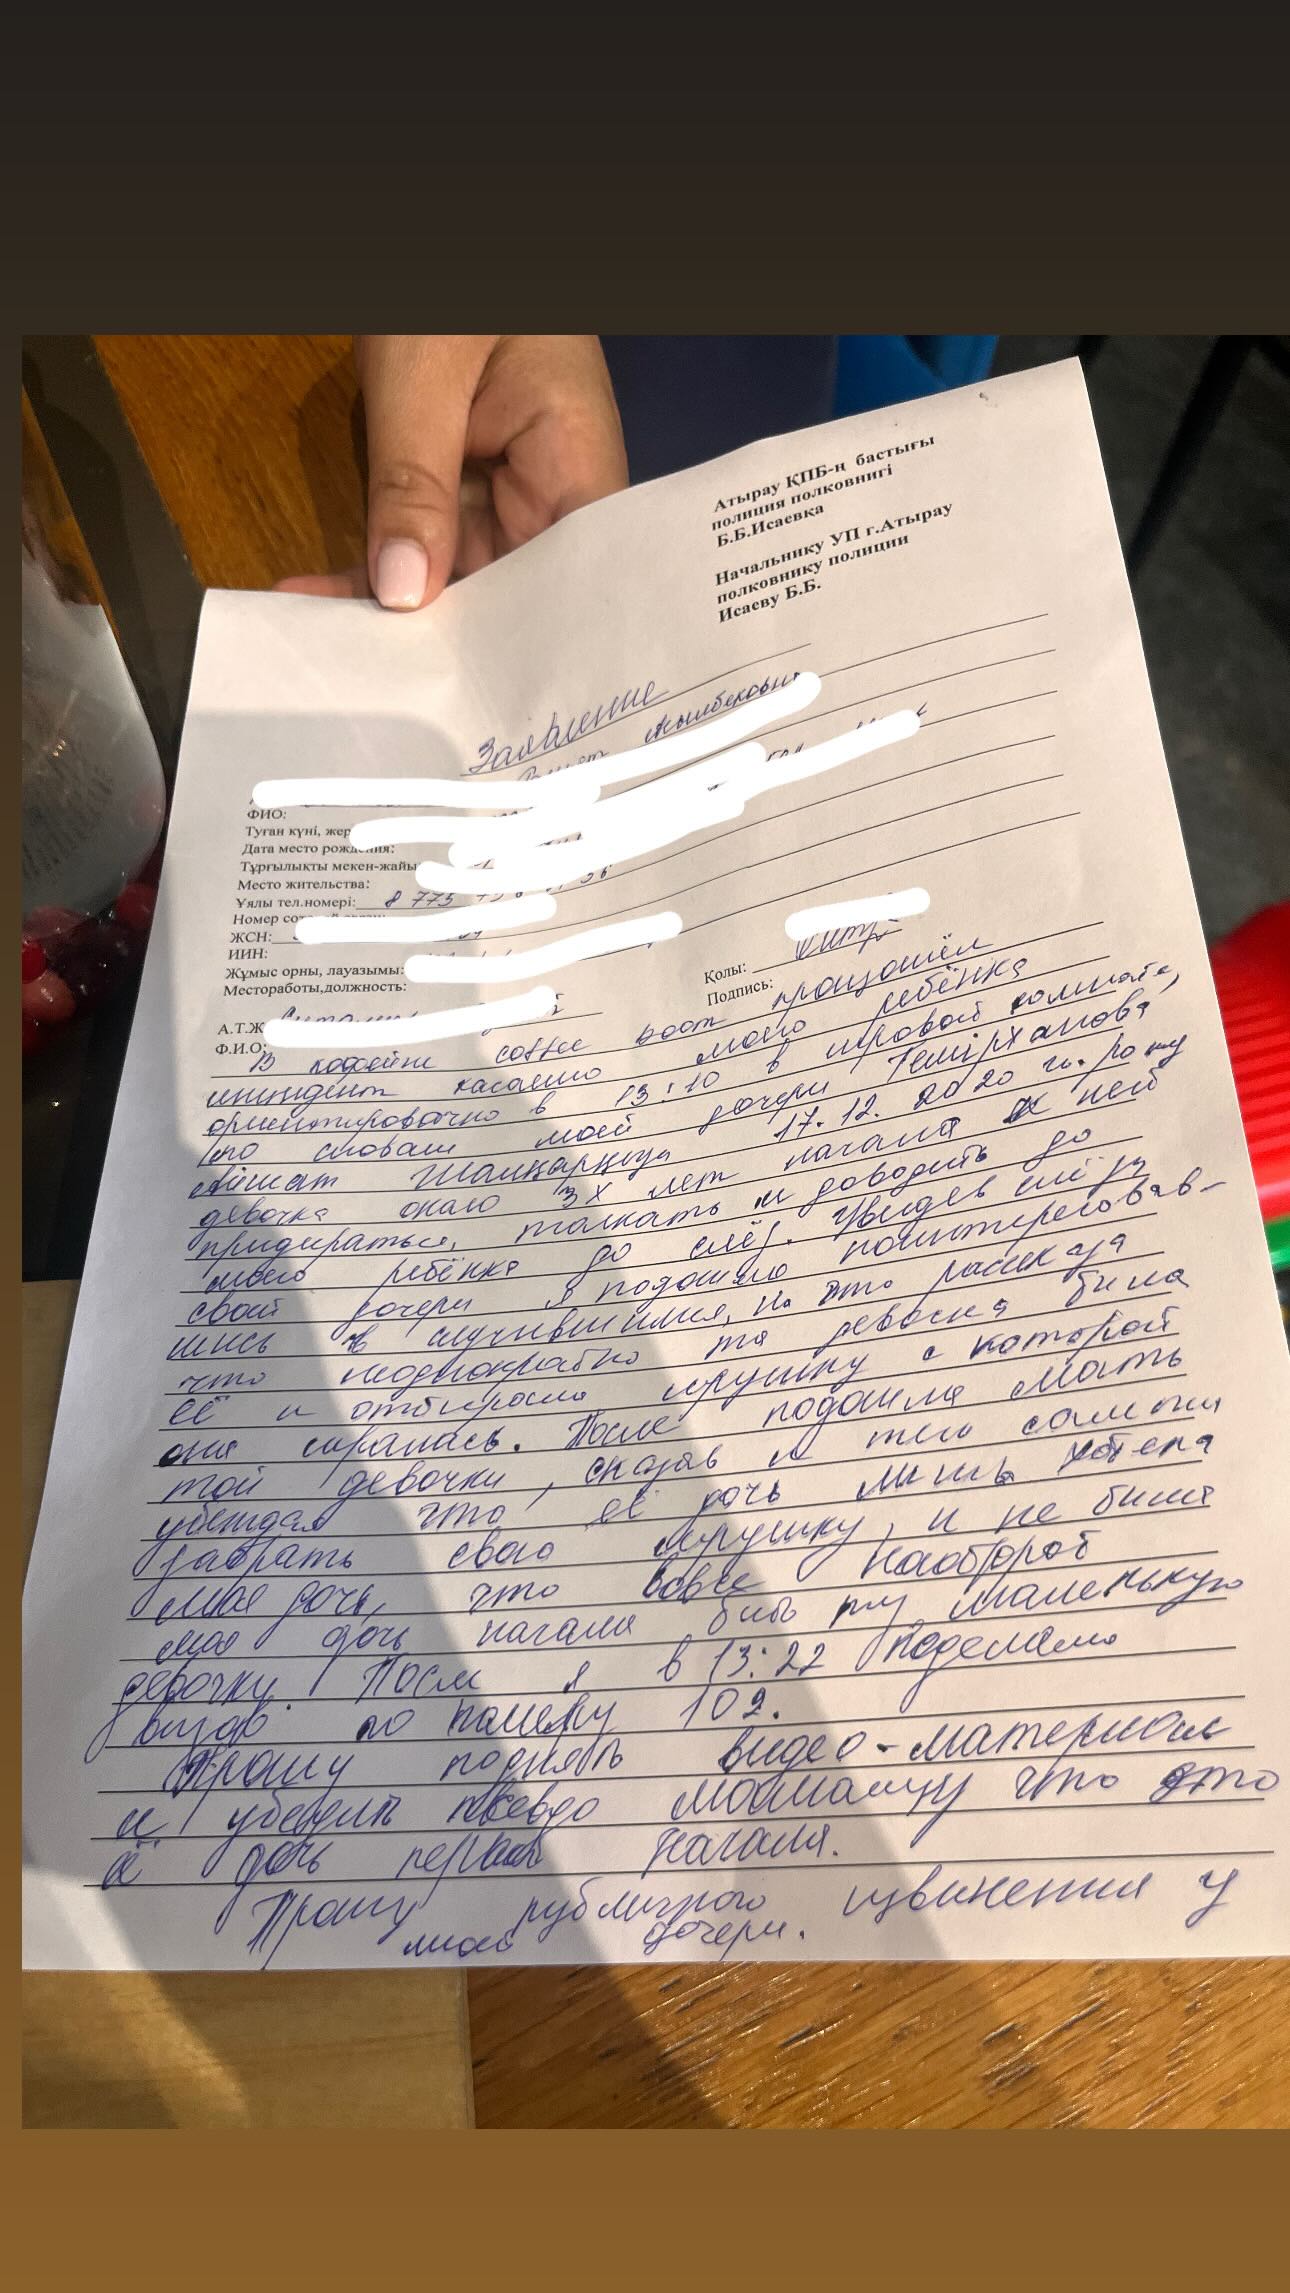 Атырау ҚПБ-ң бастығы
полиция полковнигі
Б.Б.Исаевқа
Начальнику УП г.Атырау
полковнику полиции
Исаеву Б.Б.
Заявление
ФИО:
Туған күні, жер
Дата место рождения:
Тұрғылықты мекен-жайы
Место жительства:
Ұялы тел.номері: 8 775
Номер сот
ЖСН:
ИИН:
Жұмыс орны, лауазымы:
Местоработы,должность:
Қолы:
Подпись:
А.Т.Ж
Ф.И.О:
В кофейне coffee boom произошёл
инцидент касаемо моего ребёнка
ориентировочно в 13:10 в игровой комнате,
по словам моей дочери Темірханова
Айшат 17.12.2020 г. рожу
девочка около 3х лет начала к ней
придираться, толкать и доводить до
моего ребёнка до слёз. Увидев слёзы
своей дочери я подошла поинтересовав-
шись в случившимся, на что рассказа
что неоднократно та девочка била
её и отбирала игрушку с которой
она игралась. После подошла мать
той девочки, сказав и тем самым
убеждая что её дочь лишь хотела
забрать свою игрушку, и не била
мая дочь, что вовсе наоборот
моя дочь начала бить ту маленькую
девочку. После я в 13:22 поделала
вызов по номеру 102.
Прошу поднять видео-материал
и убедить псевдо мамашу что это
её дочь первая начала.
Прошу публичного извинения у
моей дочери.